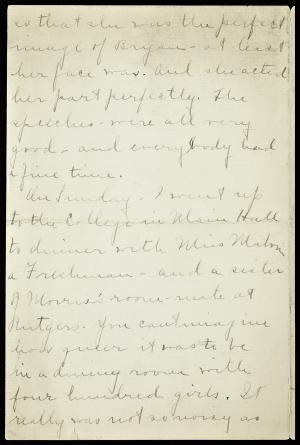 so that she was the perfect
image of Bryan - at least
her face was. And she acted
her part perfectly. The
speeches - were all very
good - and everybody had
a fine time.
On Sunday - I went up
to the College in Main Hall
to dinner with Miss
a Freshman - and a sister
of Morris's room-mate at
Rutgers. You can't imagine
how queer it was to be
in a dining room with
four hundred girls. It
really was not so noisy as